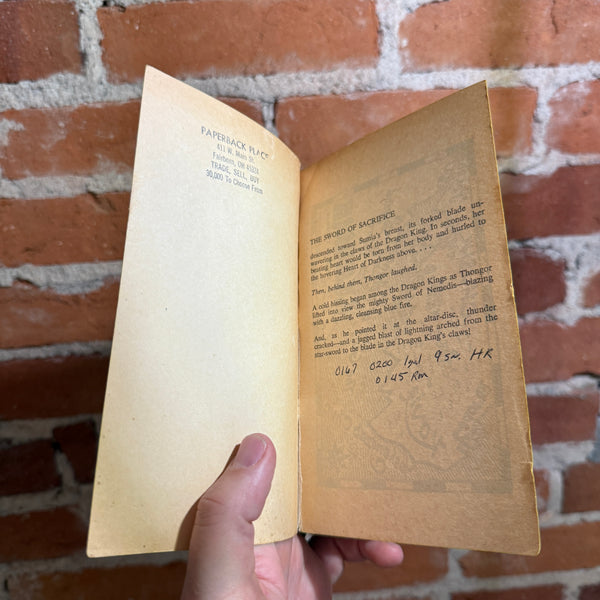 PAPERBACK PLACE
411 W. Main St.
Fairborn, OH 45324
TRADE, SELL, BUY
30,000 To Choose From
THE SWORD OF SACRIFICE
descended toward Sumia's breast, its forked blade un-
wavering in the claws of the Dragon King. In seconds, her
beating heart would be torn from her body and hurled to
the hovering Heart of Darkness above. . . .
Then, behind them, Thongor laughed.
A cold hissing began among the Dragon Kings as Thongor
lifted into view the mighty Sword of Nemedis—blazing
with a dazzling, cleansing blue fire.
And, as he pointed it at the altar-disc, thunder
cracked—and a jagged blast of lightning arched from the
star-sword to the blade in the Dragon King's claws!
0167 0200 HR
0145